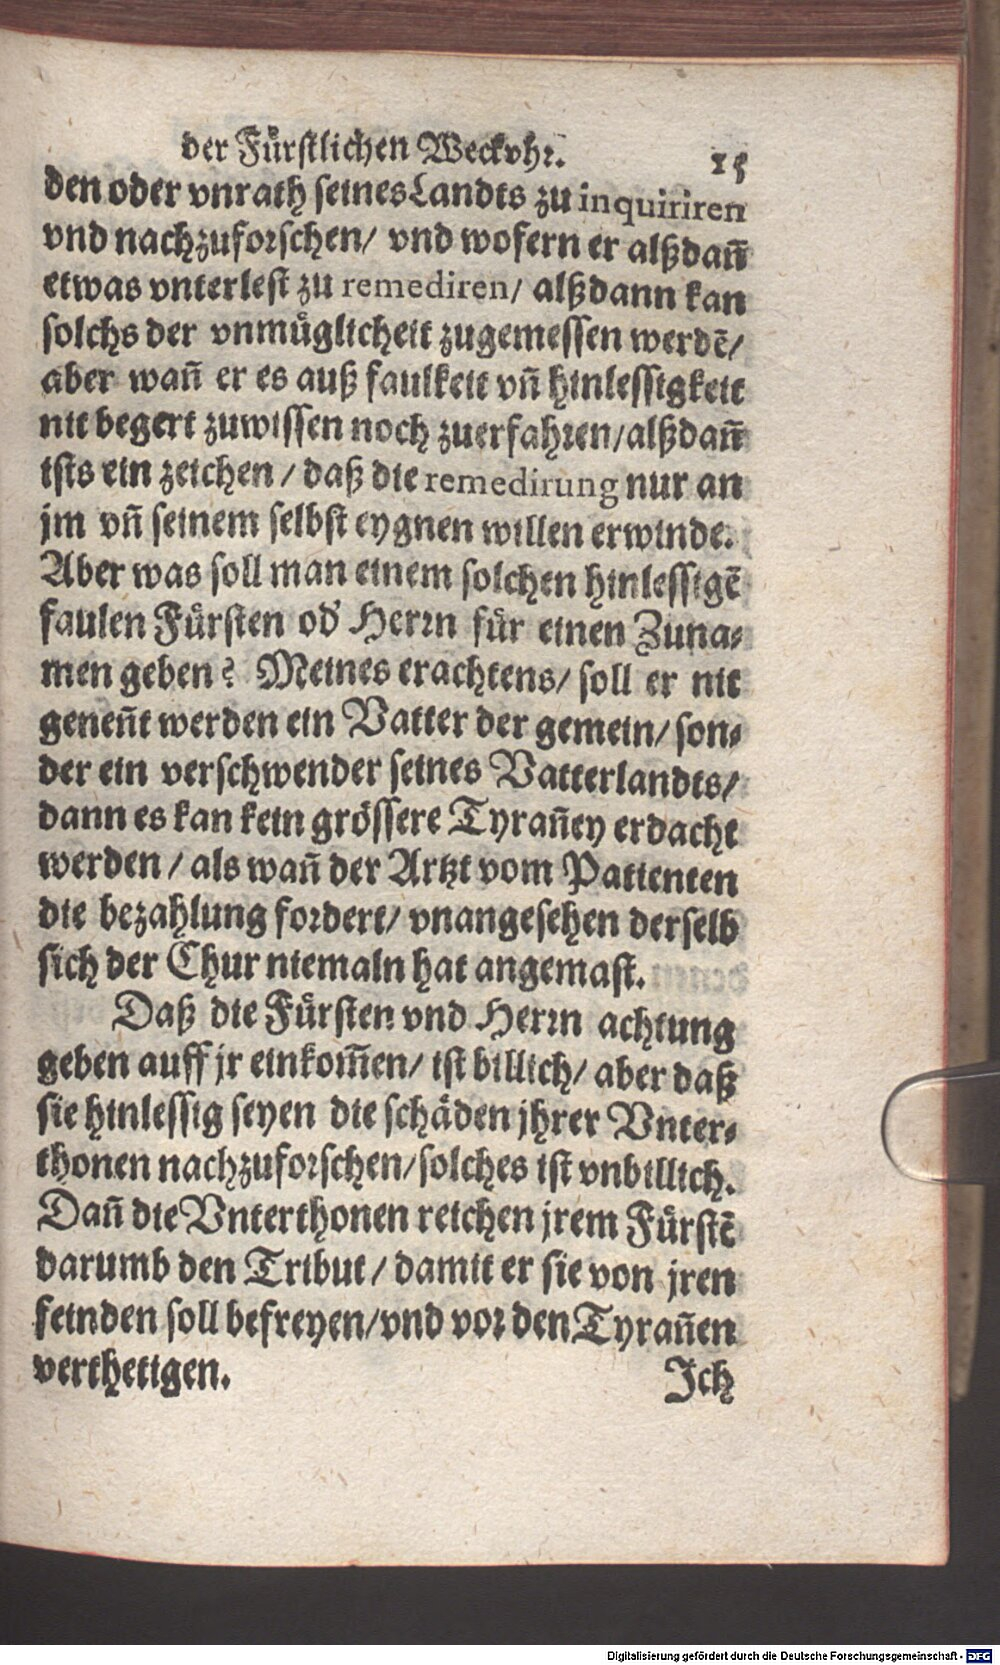 der Fürstlichen Weckvhr. 15
den oder vnrath seines Landts zu inquiriren
vnd nachzuforschen/ vnd wofern er alßdañ
etwas vnterlest zu remediren/ alßdann kan
solchs der vnmüglicheit zugemessen werdẽ/
aber wañ er es auß faulkeit vñ hinlessigkeit
nit begert zuwissen noch zuerfahren/alßdañ
ists ein zeichen / daß die remedirung nur an
jm vñ seinem selbst eygnen willen erwinde.
Aber was soll man einem solchen hinlessigẽ
faulen Fürsten od' Herrn für einen Zuna-
men geben? Meines erachtens/ soll er nit
geneñt werden ein Vatter der gemein/ son-
der ein verschwender seines Vatterlandts/
dann es kan kein grössere Tyrañey erdacht
werden / als wañ der Artzt vom Patienten
die bezahlung fordert/ vnangesehen derselb
sich der Chur niemaln hat angemast.
Daß die Fürsten vnd Herrn achtung
geben auff jr einkom̃en/ ist billich/ aber daß
sie hinlessig seyen die schäden jhrer Vnter-
thonen nachzuforschen/solches ist vnbillich.
Dañ die Vnterthonen reichen jrem Fürstẽ
darumb den Tribut / damit er sie von jren
feinden soll befreyen/vnd vor den Tyrañen
verthetigen. Ich
Digitalisierung gefördert durch die Deutsche Forschungsgemeinschaft - DFG